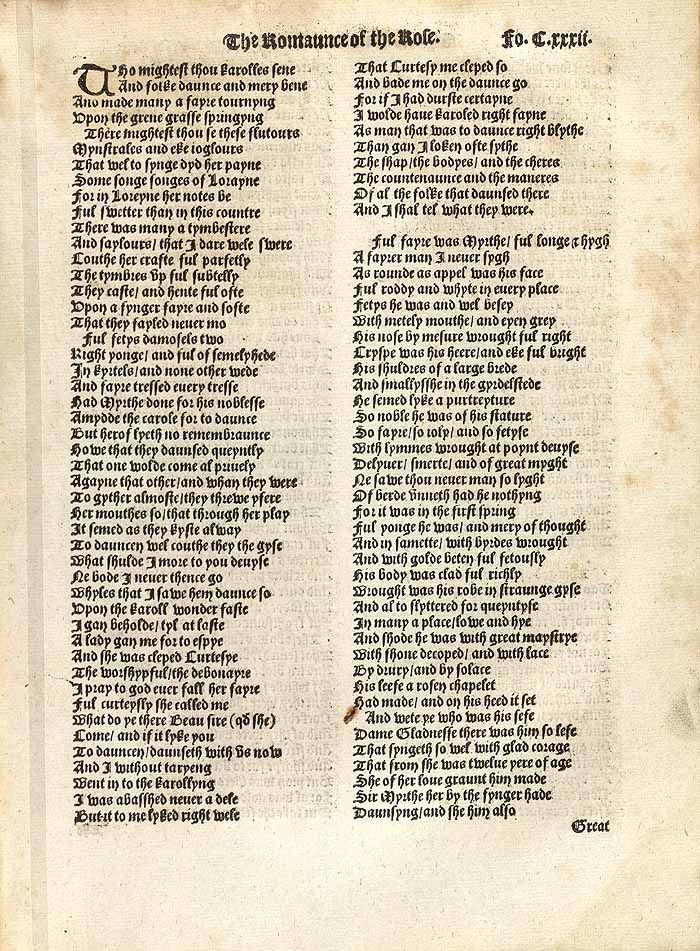 The Romaunce of the Rose. Fo. C.xxxii.
THo mightest thou karolles sene
And folke daunce and mery bene
And made many a fayre tournyng
Vpon the grene grasse springyng
There mightest thou se these flutours
Mynstrales and eke ioglours
That wel to synge dyd her payne
Some songe songes of Lorayne
For in Loreyne her notes be
Ful swetter than in this countre
There was many a tymbestere
And saylours/ that I dare wele swere
Couthe her crafte ful parfetly
The tymbres vp ful subtelly
They caste/ and hente ful ofte
Vpon a fynger fayre and softe
That they fayled neuer mo
Ful fetys damosels two
Right yonge/ and ful of semelyhede
In kyrtels/ and none other wede
And fayre tressed euery tresse
Had Myrthe done for his noblesse
Amydde the carole for to daunce
But herof lyeth no remembraunce
Howe that they daunsed queyntly
That one wolde come al priuely
Agayne that other/ and whan they were
To gyther almoste/ they threwe yfere
Her mouthes so/ that through her play
It semed as they kyste alway
To dauncen wel couthe they the gyse
What shulde I more to you deuyse
Ne bode I neuer thence go
Whyles that I sawe hem daunce so
Vpon the karoll wonder faste
I gan beholde/ tyl at laste
A lady gan me for to espye
And she was cleped Curtesye
The worshypful/ the debonayre
I pray to god euer fall her fayre
Ful curteysly she called me
What do ye there Beau sire (qd she)
Come/ and if it lyke you
To dauncen/ daunseth with vs now
And I without taryeng
Went in to the karollyng
I was abasshed neuer a dele
But it to me lyked right wele
That Curtesy me cleped so
And bade me on the daunce go
For if I had durste certayne
I wolde haue karoled right fayne
As man that was to daunce right blythe
Than gan I loken ofte sythe
The shap/ the bodyes/ and the cheres
The countenaunce and the maneres
Of al the folke that daunsed there
And I shal tel what they were.
Ful fayre was Myrthe/ ful longe & hygh
A fayrer man I neuer sygh
As rounde as appel was his face
Ful roddy and whyte in euery place
Fetys he was and wel besey
With metely mouthe/ and eyen grey
His nose by mesure wrought ful right
Cryspe was his heere/ and eke ful bright
His shuldres of a large brede
And smallysshe in the gyrdelstede
He semed lyke a purtreyture
So noble he was of his stature
So fayre/ so ioly/ and so fetyse
With lymmes wrought at poynt deuyse
Delyuer/ smerte/ and of great myght
Ne sawe thou neuer man so lyght
Of berde vnneth had he nothyng
For it was in the first spring
Ful yonge he was/ and mery of thought
And in samette/ with byrdes wrought
And with golde beten ful fetously
His body was clad ful richly
Wrought was his robe in straunge gyse
And al to slyttered for queyntyse
In many a place/ lowe and hye
And shode he was with great maystrye
With shone decoped/ and with lace
By drury/ and by solace
His leefe a rosen chapelet
Had made/ and on his heed it set
And wete ye who was his lefe
Dame Gladnesse there was him so lefe
That syngeth so wel with glad corage
That from she was twelue yere of age
She of her loue graunt him made
Sir Myrthe her by the fynger hade
Daunsyng/ and she him also
Great